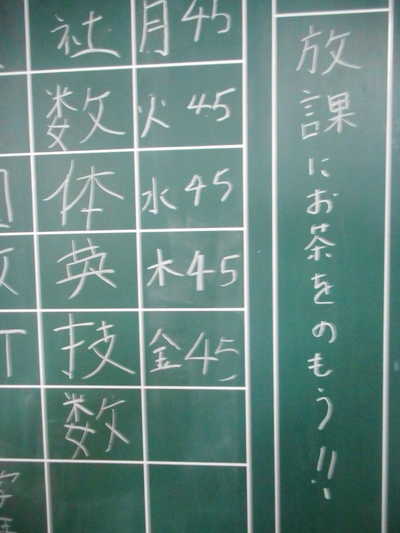 放課にお茶をのもう!!
月45
火45
水45
木45
金45
社
数
体
英
技
数